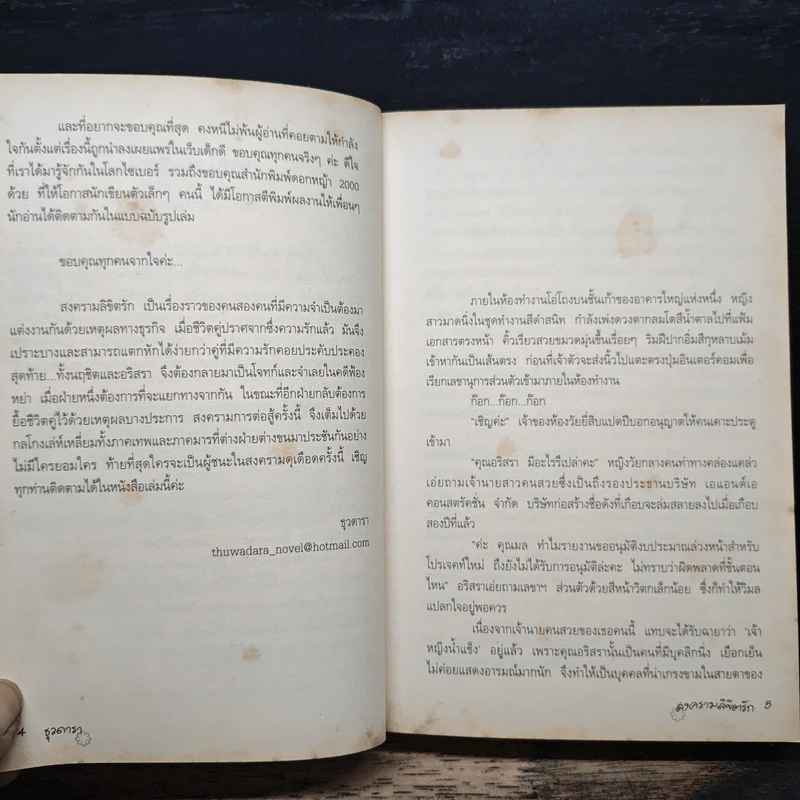 และที่อยากจะขอบคุณที่สุด คงหนีไม่พ้นผู้อ่านที่คอยตามให้กำลัง
ใจกันตั้งแต่เรื่องนี้ถูกนำลงเผยแพร่ในเว็บเด็กดี ขอบคุณทุกคนจริงๆ ค่ะ ดีใจ
ที่เราได้มารู้จักกันในโลกไซเบอร์ รวมถึงขอบคุณสำนักพิมพ์ดอกหญ้า 2000
ด้วย ที่ให้โอกาสนักเขียนตัวเล็กๆ คนนี้ ได้มีโอกาสตีพิมพ์ผลงานให้เพื่อนๆ
นักอ่านได้ติดตามกันในแบบฉบับรูปเล่ม
ขอบคุณทุกคนจากใจค่ะ...
สงครามลิขิตรัก เป็นเรื่องราวของคนสองคนที่มีความจำเป็นต้องมา
แต่งงานกันด้วยเหตุผลทางธุรกิจ เมื่อชีวิตคู่ปราศจากซึ่งความรักแล้ว มันจึง
เปราะบางและสามารถแตกหักได้ง่ายกว่าคู่ที่มีความรักคอยประคับประคอง
สุดท้าย...ทั้งนฤชิตและอริสรา จึงต้องกลายมาเป็นโจทก์และจำเลยในคดีฟ้อง
หย่า เมื่อฝ่ายหนึ่งต้องการที่จะแยกทางจากกัน ในขณะที่อีกฝ่ายกลับต้องการ
ยื้อชีวิตคู่ไว้ด้วยเหตุผลบางประการ สงครามการต่อสู้ครั้งนี้ จึงเต็มไปด้วย
กลโกงเล่ห์เหลี่ยมทั้งภาคเทพและภาคมารที่ต่างฝ่ายต่างขนมาประชันกันอย่าง
ไม่มีใครยอมใคร ท้ายที่สุดใครจะเป็นผู้ชนะในสงครามดุเดือดครั้งนี้ เชิญ
ทุกท่านติดตามได้ในหนังสือเล่มนี้ค่ะ
ธุวดารา
thuwadara_novel@hotmail.com
4 ธุวดารา
ภายในห้องทำงานโอ่โถงบนชั้นเก้าของอาคารใหญ่แห่งหนึ่ง หญิง
สาวมาดนิ่งในชุดทำงานสีดำสนิท กำลังเพ่งดวงตากลมโตสีน้ำตาลไปที่แฟ้ม
เอกสารตรงหน้า คิ้วเรียวสวยขมวดมุ่นขึ้นเรื่อยๆ ริมฝีปากอิ่มสีกุหลาบเม้ม
เข้าหากันเป็นเส้นตรง ก่อนที่เจ้าตัวจะส่งนิ้วไปแตะตรงปุ่มอินเตอร์คอมเพื่อ
เรียกเลขานุการส่วนตัวเข้ามาภายในห้องทำงาน
ก๊อก...ก๊อก...ก๊อก
"เชิญค่ะ" เจ้าของห้องวัยยี่สิบแปดปีบอกอนุญาตให้คนเคาะประตู
เข้ามา
"คุณอริสรา มีอะไรรึเปล่าคะ" หญิงวัยกลางคนท่าทางคล่องแคล่ว
เอ่ยถามเจ้านายสาวคนสวยซึ่งเป็นถึงรองประธานบริษัท เอแอนด์เอ
คอนสตรัคชั่น จำกัด บริษัทก่อสร้างชื่อดังที่เกือบจะล่มสลายลงไปเมื่อเกือบ
สองปีที่แล้ว
"ค่ะ คุณมล ทำไมรายงานขออนุมัติงบประมาณล่วงหน้าสำหรับ
โปรเจคท์ใหม่ ถึงยังไม่ได้รับการอนุมัติล่ะคะ ไม่ทราบว่าผิดพลาดที่ขั้นตอน
ไหน" อริสราเอ่ยถามเลขาฯ ส่วนตัวด้วยสีหน้าวิตกเล็กน้อย ซึ่งก็ทำให้วิมล
แปลกใจอยู่พอควร
เนื่องจากเจ้านายคนสวยของเธอคนนี้ แทบจะได้รับฉายาว่า 'เจ้า
หญิงน้ำแข็ง' อยู่แล้ว เพราะคุณอริสรานั้นเป็นคนที่มีบุคลิกนิ่ง เยือกเย็น
ไม่ค่อยแสดงอารมณ์มากนัก จึงทำให้เป็นบุคคลที่น่าเกรงขามในสายตาของ
สงครามลิขิตรัก 5